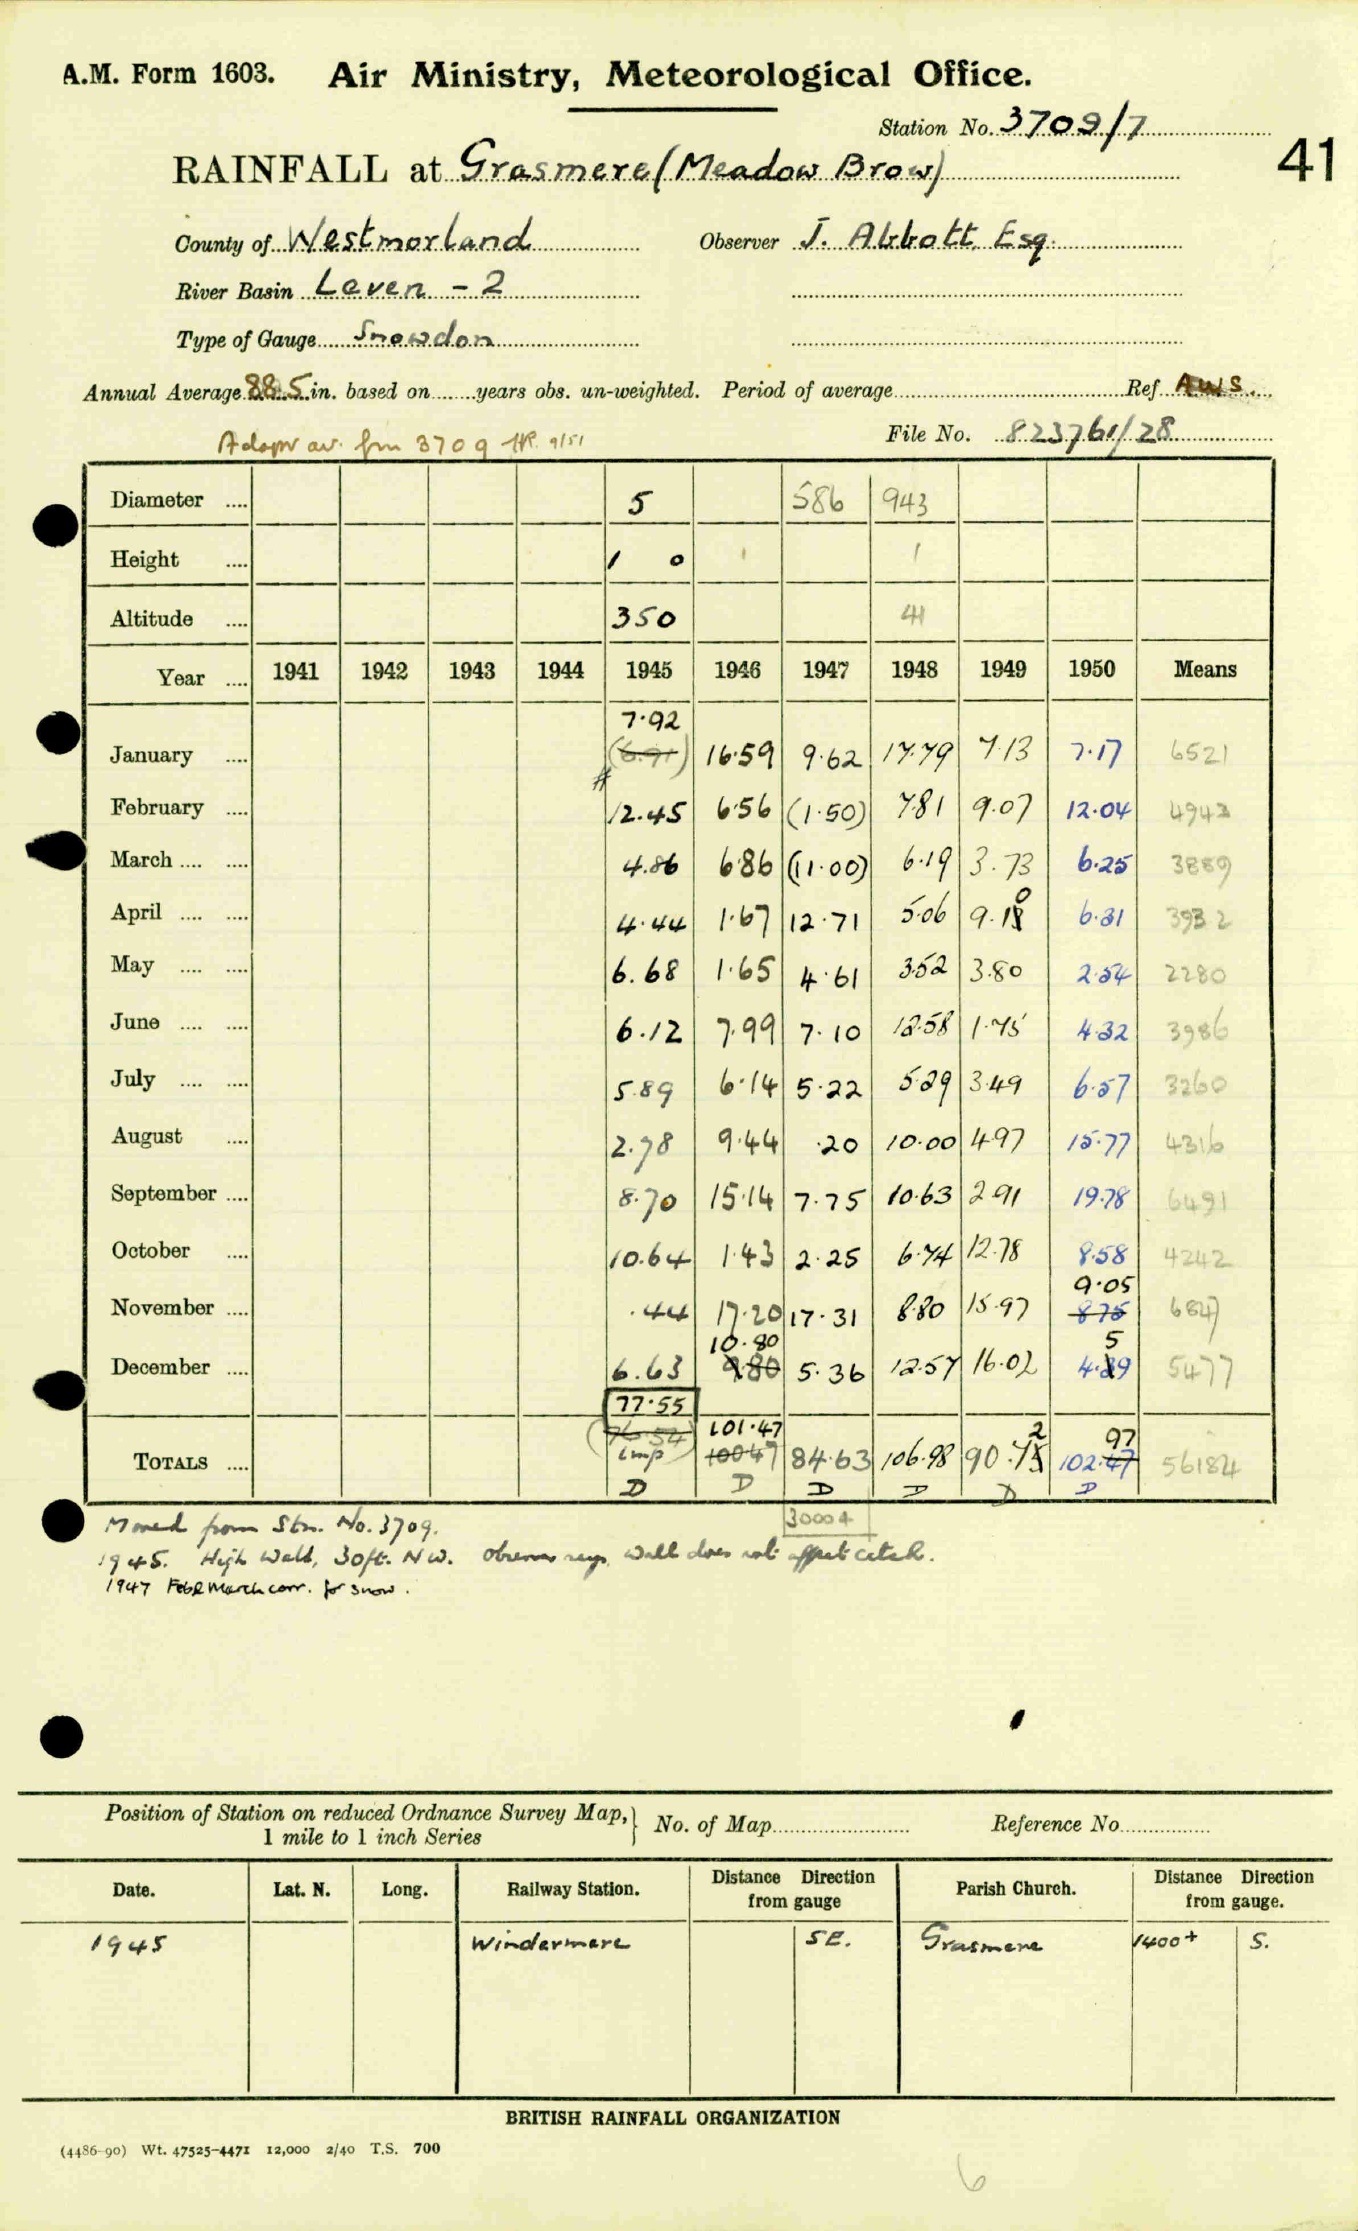 A.M. Form 1603. Air Ministry, Meteorological Office.
Station No. 3709/7
41
RAINFALL at Grasmere (Meadow Brow)
County of Westmorland Observer J. Abbott Esq.
River Basin Leven - 2
Type of Gauge Snowdon
Annual Average 88.5 in. based on ........ years obs. un-weighted. Period of average ........ Ref. AWS.
File No. 823761/28
Adopt av. fm 3709 HR. 9/51
Diameter .... 5 586 943
Height .... 1 0 1 1
Altitude .... 350 41
Year .... 1941 1942 1943 1944 1945 1946 1947 1948 1949 1950 Means
7.92
January .... (6.91) 16.59 9.62 17.79 7.13 7.17 6521
#
February .... 12.45 6.56 (1.50) 7.81 9.07 12.04 4943
March .... .... 4.86 6.86 (11.00) 6.19 3.73 6.25 3889
0
April .... .... 4.44 1.67 12.71 5.06 9.18 6.31 3932
May .... .... 6.68 1.65 4.61 3.52 3.80 2.54 2280
June .... .... 6.12 7.99 7.10 12.58 1.75 4.32 3986
July .... .... 5.89 6.14 5.22 5.29 3.49 6.57 3260
August .... 2.78 9.44 .20 10.00 4.97 15.77 4316
September .... 8.70 15.14 7.75 10.63 2.91 19.78 6491
October .... 10.64 1.43 2.25 6.74 12.78 8.58 4242
9.05
November .... .44 17.20 17.31 8.80 15.97 8.75 6847
10.80 5
December .... 6.63 9.80 5.36 12.57 16.02 4.39 5477
77.55
(76.54) 101.47 2 97
TOTALS .... imp 100.47 84.63 106.98 90.75 102.47 56184
D D D D D D
30004
Moved from Stn. No. 3709.
1945. High Wall, 30ft. NW. Observer says wall does not affect catch.
1947 Feb & March corr. for snow.
Position of Station on reduced Ordnance Survey Map, 1 mile to 1 inch Series } No. of Map ........ Reference No. ........
Date. Lat. N. Long. Railway Station. Distance Direction from gauge Parish Church. Distance Direction from gauge.
1945 Windermere SE. Grasmere 1400+ S.
BRITISH RAINFALL ORGANIZATION
(4486-90) Wt. 47525-4471 12,000 2/40 T.S. 700
6